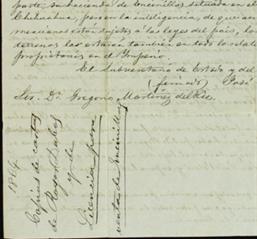 parte, su hacienda de Encinillas situada en el
Chihuahua, pero en la inteligencia de que
mexicanos estan sujetos a las leyes del pais, los
terrenos las estarán tambien en todo lo relat
propietarios en el Imperio.
El Subsecretario de Estado y del
(firmado) José
Sor. Dn. Gregorio Martinez del Rio.
1864
Copias de cartas
de Roger Dubos
y de
Licencia para
ventas de Encinillas